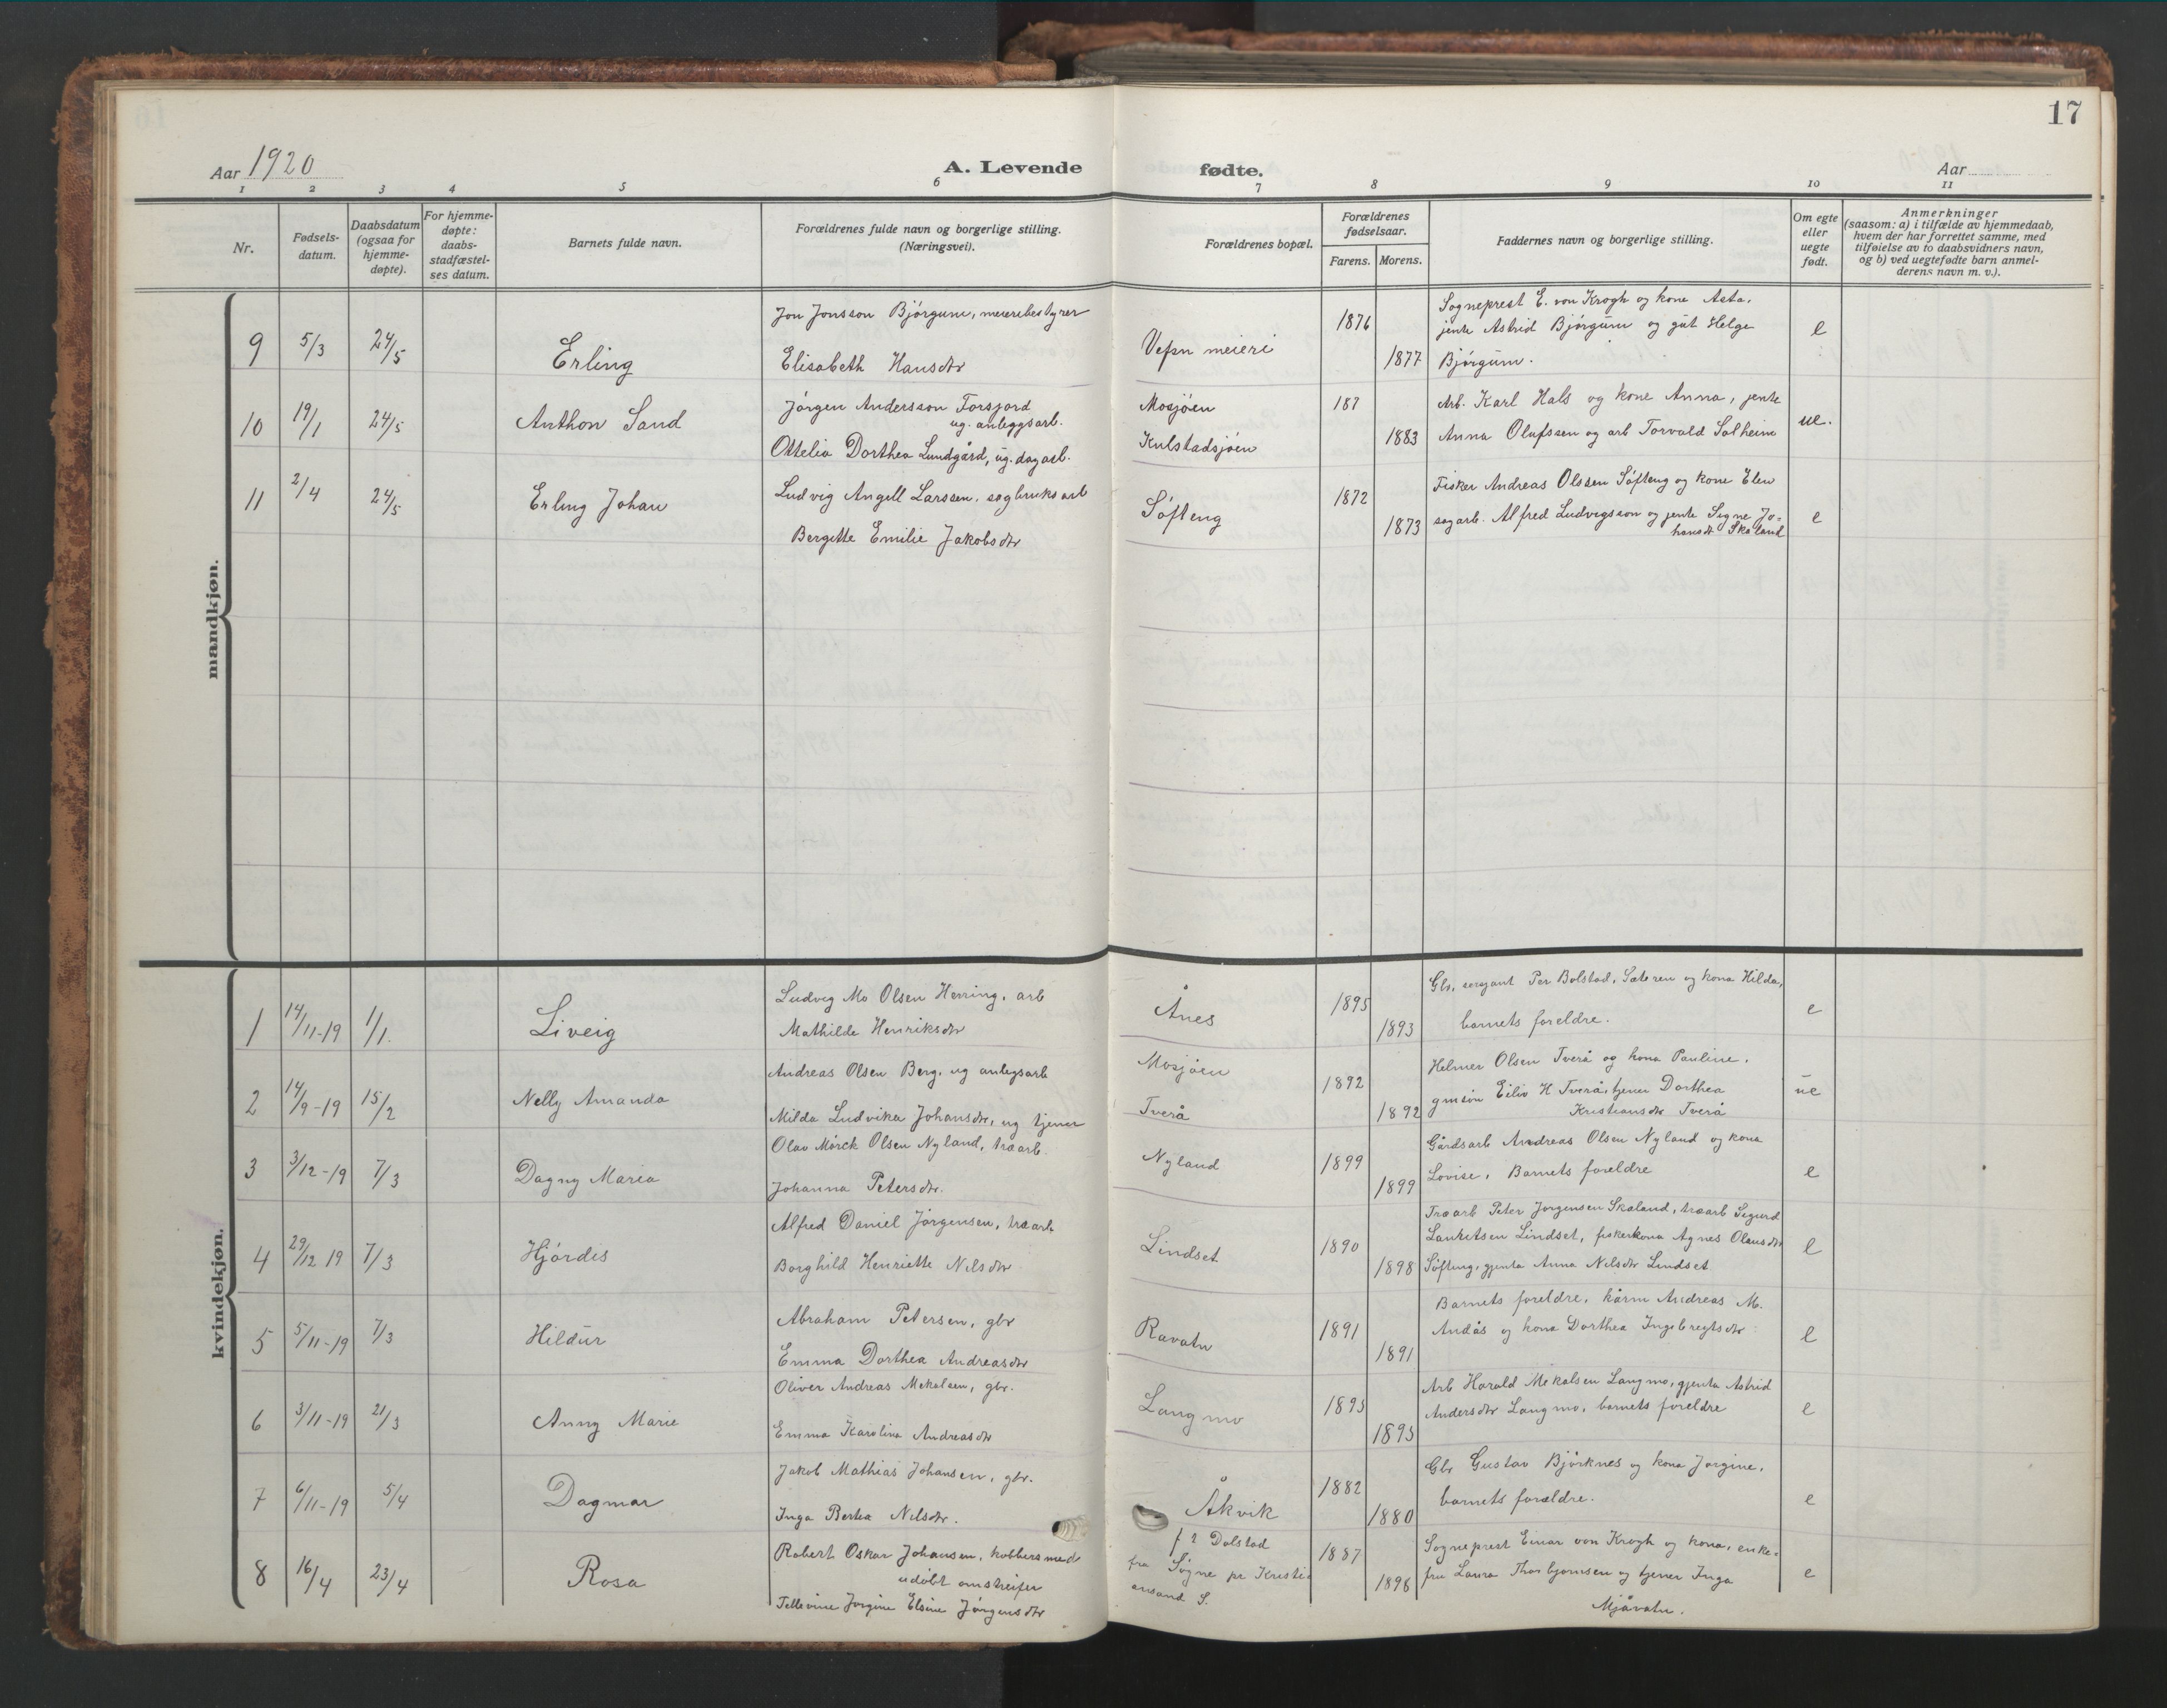 17
Aar 1920
A. Levende fødte.
Aar
1 2 3 4 5 6 7 8 9 10 11
Nr.
Fødsels-
datum.
Daabsdatum
(ogsaa for
hjemme-
døpte).
For hjemme-
døpte:
daabs-
stadfæstel-
ses datum.
Barnets fulde navn.
Forældrenes fulde navn og borgerlige stilling.
(Næringsvei).
Forældrenes bopæl.
Forældrenes
fødselsaar.
Farens. Morens.
Faddernes navn og borgerlige stilling.
Om egte
eller
uegte
født.
Anmerkninger
(saasom: a) i tilfælde av hjemmedaab,
hvem der har forrettet samme, med
tilføielse av to daabsvidners navn,
og b) ved uegtefødte barn anmel-
derens navn m. v.).
mandkjøn.
9 5/3 24/5 Erling
Jon Jonsson Bjørgum, meieribestyrer
Elisabeth Hansdtr
Vefsn meieri
1876
1877
Sogneprest E. von Krogh og kone Asta,
jente Astrid Bjørgum og gut Helge
Bjørgum.
e
10 19/1 24/5 Anthon Sand
Jørgen Andersson Forsjord
ug. anleggsarb.
Ottelia Dorthea Lundgård, ug. dagarb.
Mosjøen
Kulstadsjøen
187
1883
Arb. Karl Hals og kone Anna, jente
Anna Olufssen og arb Torvald Solheim
ue.
11 2/4 24/5 Erling Johan
Ludvig Angell Larssen, sagbruksarb
Bergitte Emilie Jakobsdtr
Søfteng
1872
1873
Fisker Andreas Olssen Søfteng og kone Elen
sagarb. Alfred Ludvigsson og jente Signe Jo=
hansdt Skaland
e
kvindekjøn.
1 14/11-19 1/1. Liveig
Ludvig Mo Olsen Herring, arb
Mathilde Henriksdtr
Ånes
1895
1893
Gbr, sersjant Per Bolstad, Sæteren og kona Hilda,
barnets foreldre.
e
2 14/9-19 15/2 Nelly Amanda
Andreas Olsen Berg, ug anlegsarb
Milda Ludvika Johansdtr, ug tjener
Mosjøen
Tverå
1892
1892
Helmer Olsen Tverå og kona Pauline,
gmsøn Eiliv H Tverå, tjener Dorthea
Kristiansdtr Tverå
ue
3 3/12-19 7/3 Dagny Maria
Olav Mørck Olsen Nyland, træarb.
Johanna Petersdtr.
Nyland
1899
1899
Gårdsarb Andreas Olsen Nyland og kona
Lovise, Barnets foreldre
e
4 29/12 19 7/3 Hjørdis
Alfred Daniel Jørgensen, træarb
Borghild Henriette Nilsdtr
Lindset
1890
1898
Træarb Peter Jørgensen Skaland, træarb Sigurd
Lauritsen Lindset, fiskerkona Agnes Olausdtr
Søfteng, gjenta Anna Nilsdtr Lindset
e
5 5/11-19 7/3 Hildur
Abraham Petersen, gbr
Emma Dorthea Andreasdtr
Ravatn
1891
1891
Barnets foreldre, kårm Andreas M.
Andås og kona Dorthea Ingebregtsdtr
e
6 3/11-19 21/3 Anny Marie
Oliver Andreas Mekalsen, gbr.
Emma Karolina Andreasdtr
Langmo
1893
1895
Arb Harald Mekalsen Langmo, gjenta Astrid
Andersdtr Langmo, barnets foreldre
e
7 6/11-19 5/4 Dagmar
Jakob Mathias Johansen, gbr.
Inga Bertea Nilsdtr.
Åkvik
1882
1880
Gbr Gustav Bjørknes og kona Jørgine,
barnets forældre.
e
8 16/4 23/4 Rosa
Robert Oskar Johansen, kobbersmed
udøbt omstreifer
Tellevine Jørgine Elsine Jørgensdtr
f i Dolstad
fra Søgne pr Kristi
ansand S.
1887
1896
Sogneprest Einar von Krogh og kona, enke=
fru Laura Thorbjørnsen og tjener Inga
Mjåvatn.
e